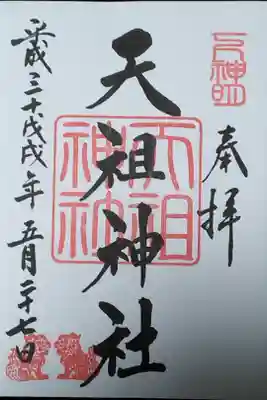 奉拝
天祖神社
天祖神社
平成三十戊戌年 五月二十七日